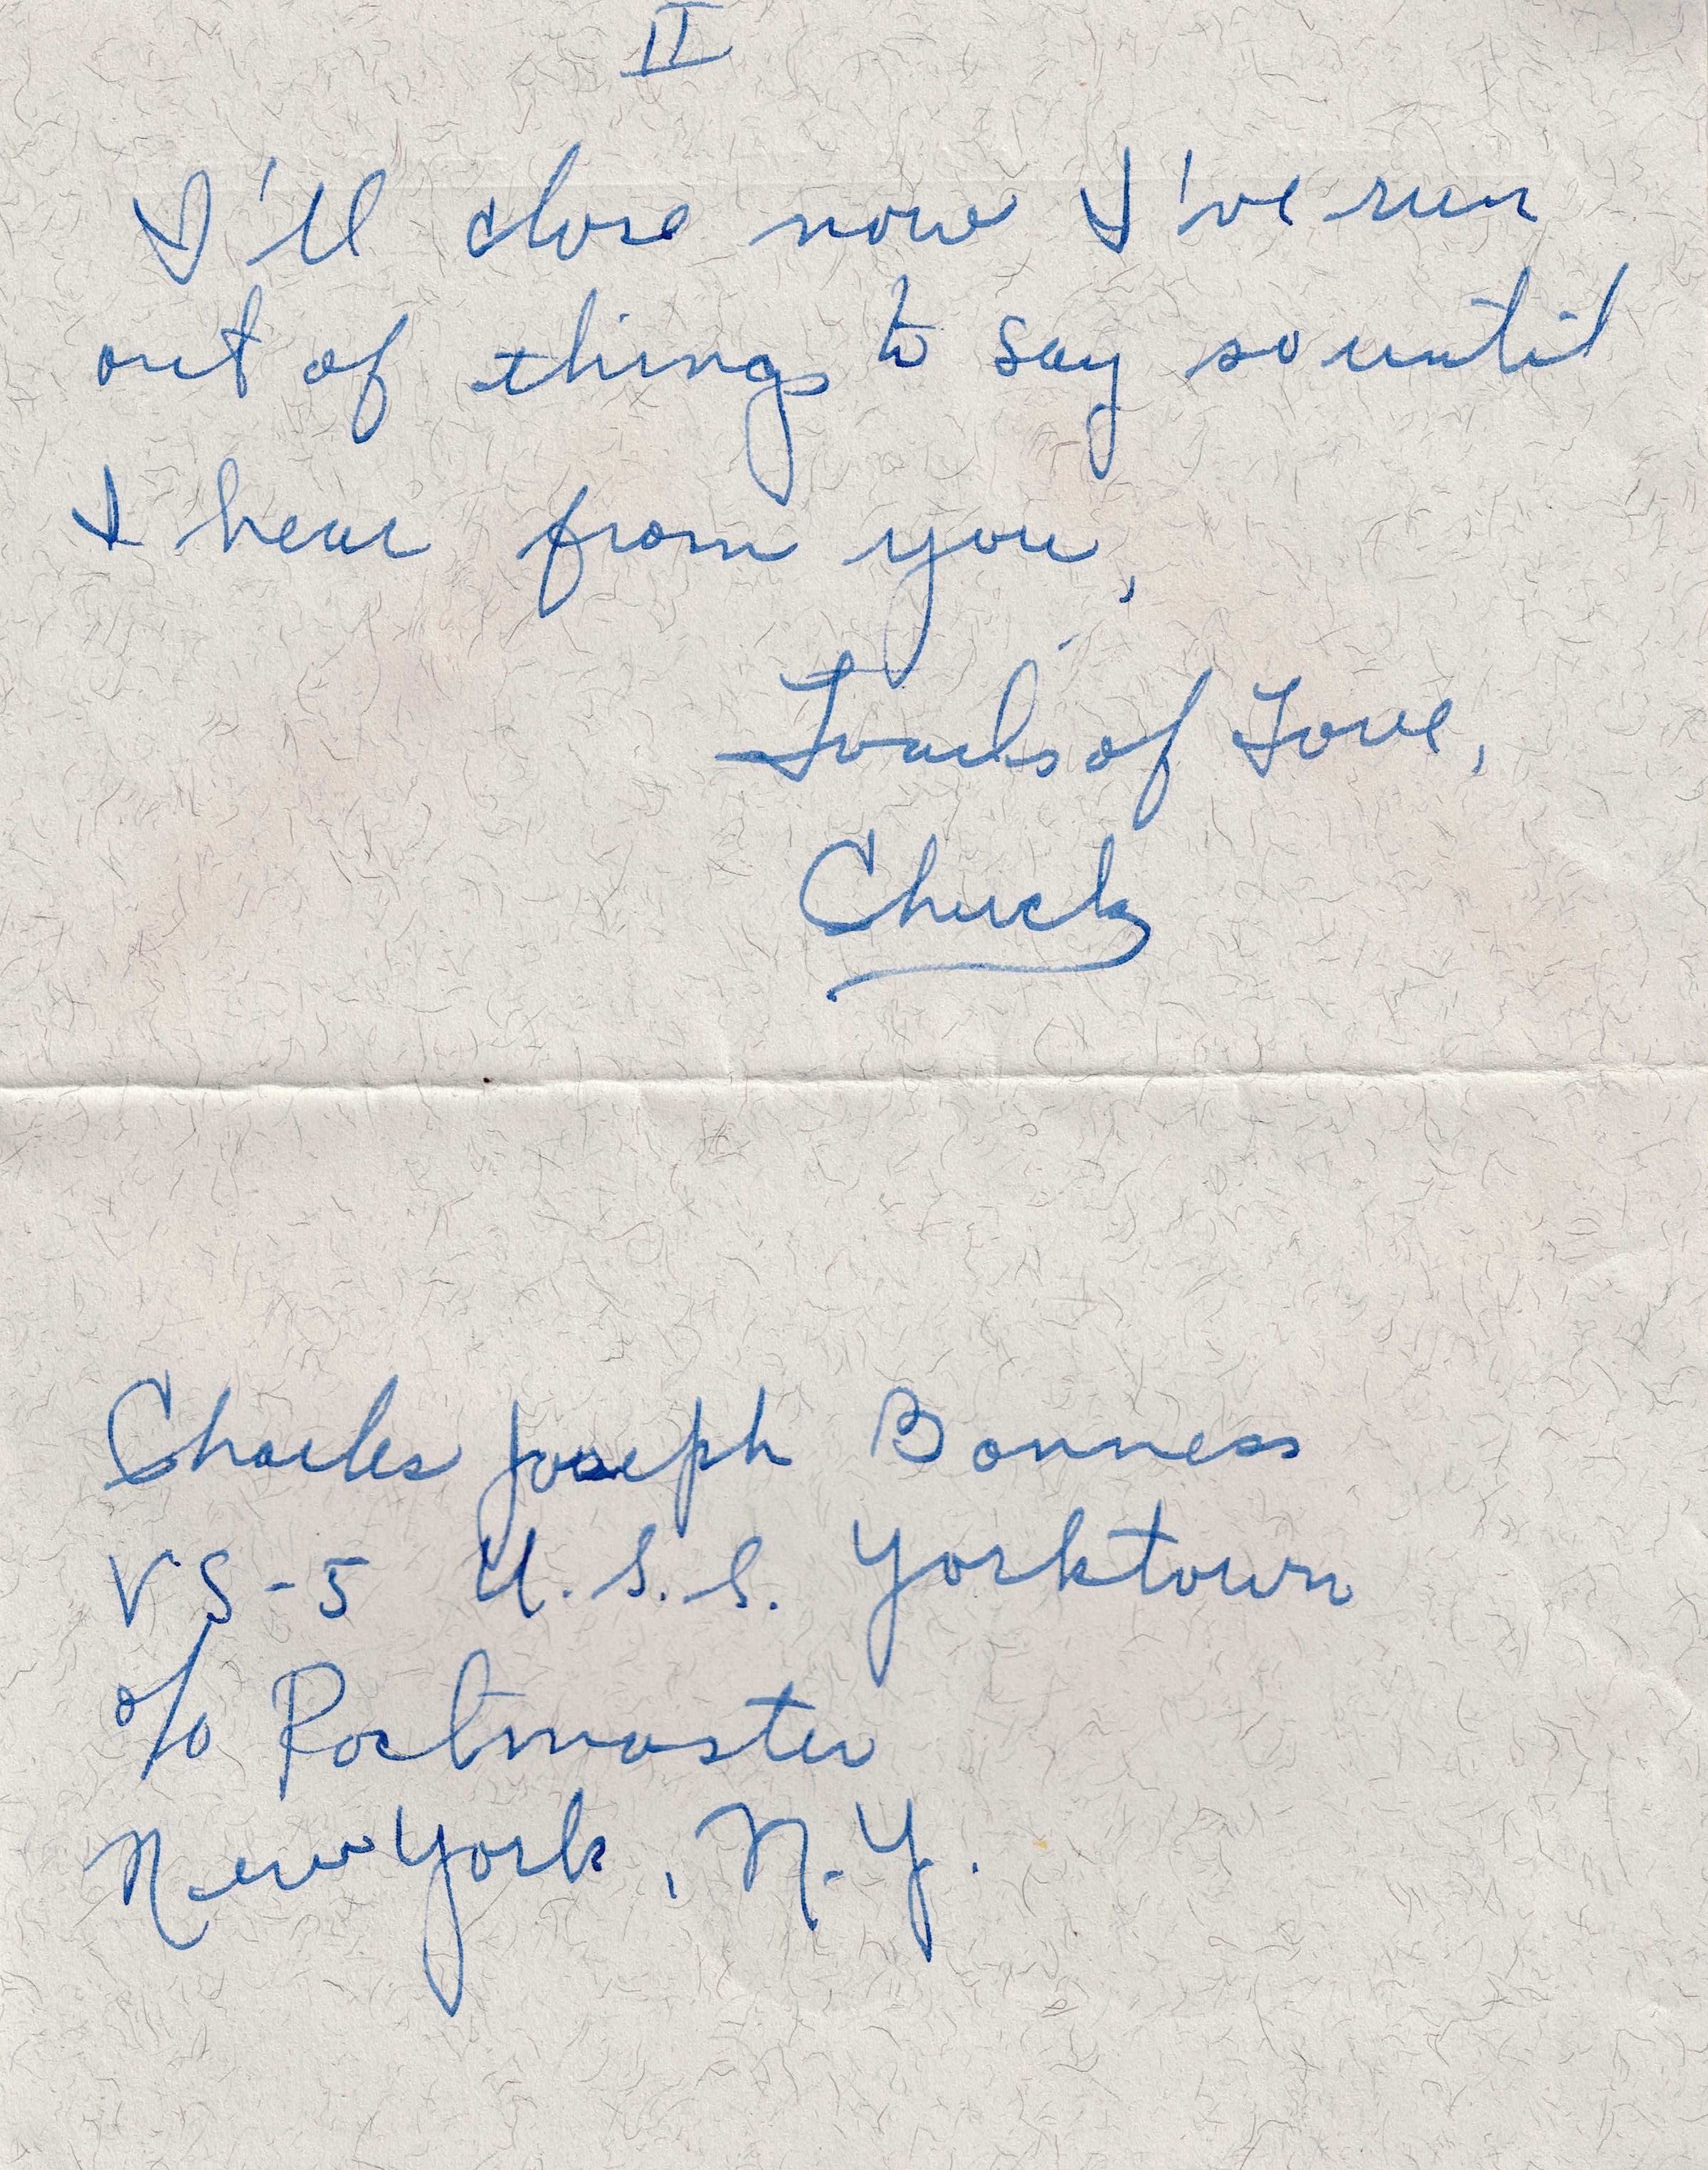 II
I'll close now I've run
out of things to say so until
I hear from you,
Loads of Love,
Chuck
Charles Joseph Bonness
VS-5 U.S.S. Yorktown
c/o Postmaster
New York, N.Y.